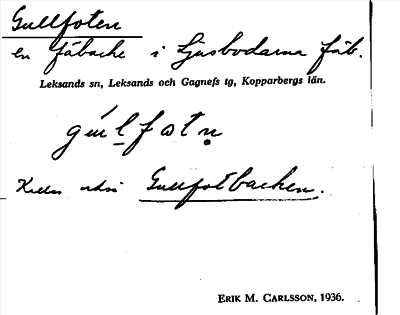 Gullfoten
en fäbacke i Ljusbodarna fäb.
Leksands sn, Leksands och Gagnefs tg, Kopparbergs län.
gúl̲fotṇ
Kallas också Gullfotbacken.
ERIK M. CARLSSON, 1936.